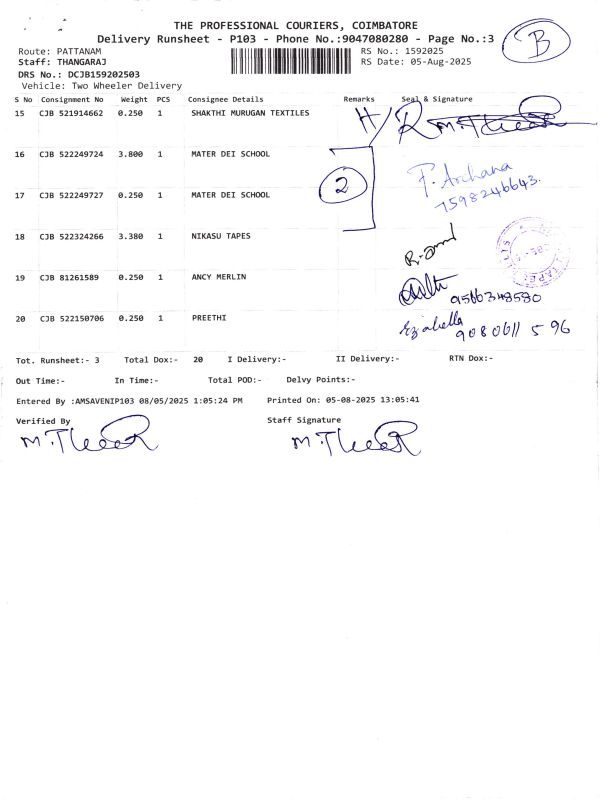 THE PROFESSIONAL COURIERS, COIMBATORE
Delivery Runsheet - P103 - Phone No.:9047080280 - Page No.:3
B
Route: PATTANAM
RS No.: 1592025
Staff: THANGARAJ
RS Date: 05-Aug-2025
DRS No.: DCJB159202503
Vehicle: Two Wheeler Delivery
S No Consignment No Weight PCS Consignee Details Remarks Seal & Signature
15 CJB 521914662 0.250 1 SHAKTHI MURUGAN TEXTILES H/R
16 CJB 522249724 3.800 1 MATER DEI SCHOOL
2
P. Archana
7598246643.
17 CJB 522249727 0.250 1 MATER DEI SCHOOL
18 CJB 522324266 3.380 1 NIKASU TAPES
19 CJB 81261589 0.250 1 ANCY MERLIN
9566348580
20 CJB 522150706 0.250 1 PREETHI
9080611 596
Tot. Runsheet:- 3 Total Dox:- 20 I Delivery:- II Delivery:- RTN Dox:-
Out Time:- In Time:- Total POD:- Delvy Points:-
Entered By :AMSAVENIP103 08/05/2025 1:05:24 PM Printed On: 05-08-2025 13:05:41
Verified By Staff Signature